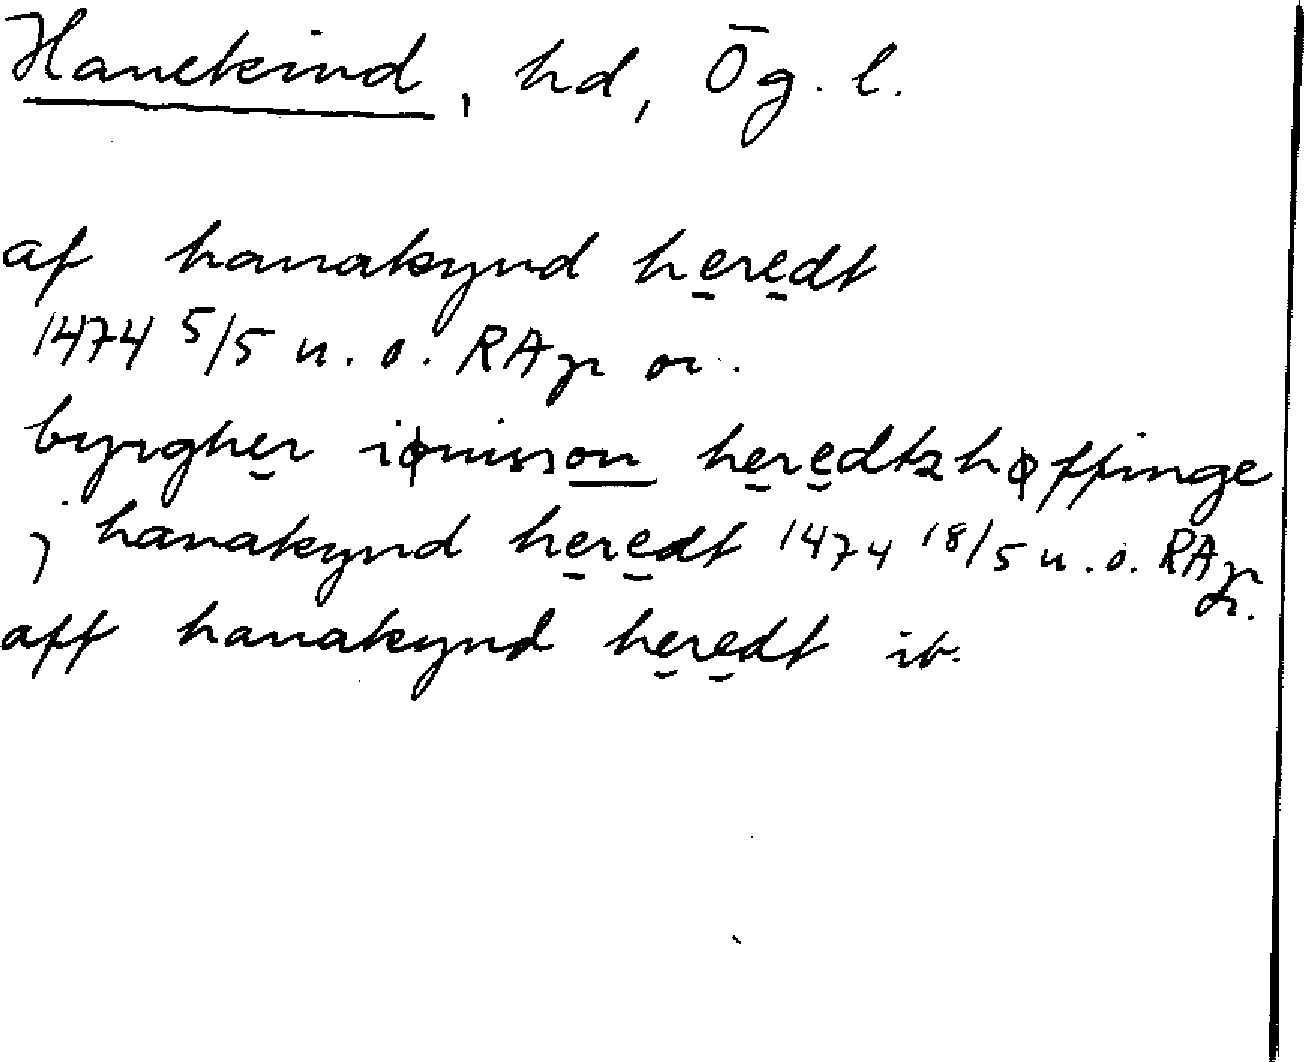 Hanekind, hd, Ög. l.
af hanakynd heredt
1474 5/5 u. o. RAp or.
byrgher iønisson heredtzhøffinge
j hanakynd heredt 1474 18/5 u. o. RAp
or.
aff hanakynd heredt ib.